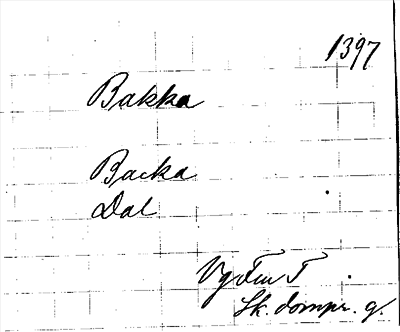 1397
Bakka
Backa
Dal
Sk. dompr. g.